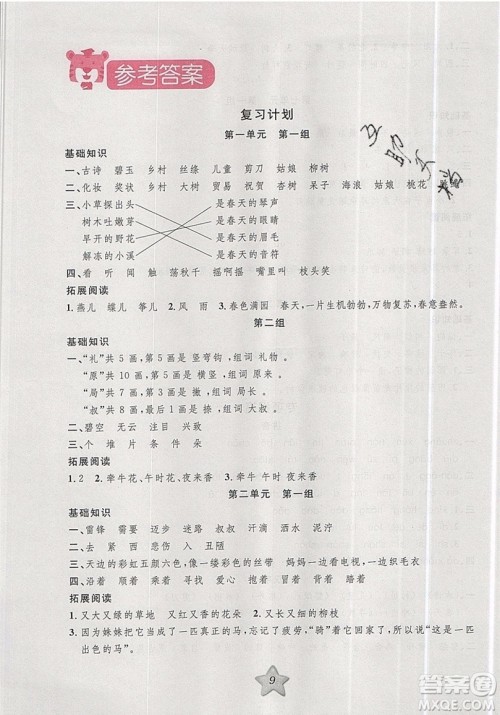 参考答案
复习计划
第一单元 第一组
基础知识
一、古诗 碧玉 乡村 丝绦 儿童 剪刀 姑娘 柳树
二、化妆 奖状 乡村 大树 贸易 留念 杏树 呆子 海浪 姑娘 桃花
三、小草探出头 是春天的琴声
树木吐嫩芽 是春天的眼睛
早开的野花 是春天的眉毛
解冻的小溪 是春天的音符
四、看 听 闻 触 荡秋千 摇啊摇 嘴里叫 枝头笑
拓展阅读
1.燕儿 蝶儿 筝儿 2.风 雨 3.春色满园 春天,一片生机勃勃,万物复苏,春意盎然。
第二组
基础知识
一、“礼”共 5 画,第 5 画是 竖弯钩 ,组词 礼物 。
“原”共 10 画,第 1 画是 横 ,组词 原来 。
“局”共 7 画,第 3 画是 撇 ,组词 局长 。
“叔”共 8 画,第 8 画是 捺 ,组词 大叔 。
二、碧空 无云 注目 兴大
三、个 堆 片 条 件 朵
拓展阅读
1.2 2.牵牛花、午时花、夜来香 3.牵牛 午时 夜来香
第二单元 第一组
基础知识
一、雷锋 需要 迈步 迷路 温暖 荆棘 汗滴 洒水 泥泞
二、去 紧 悲伤 卖 入 丑陋
三、天边的彩虹五颜六色,像一条美丽的丝带 妈妈一边看电视,一边织毛衣
四、沿着 顺着 乘着 寻找 爱心 关心
拓展阅读
1.又大又绿的草地 又红又香的花朵 2.又长又细的柳枝
3.因为妹妹把它当成了一匹真正的马,忘记了疲劳,“骑”着它回家,并且说“这是一匹
出色的马”。
9
答案圈
MXQE.COM